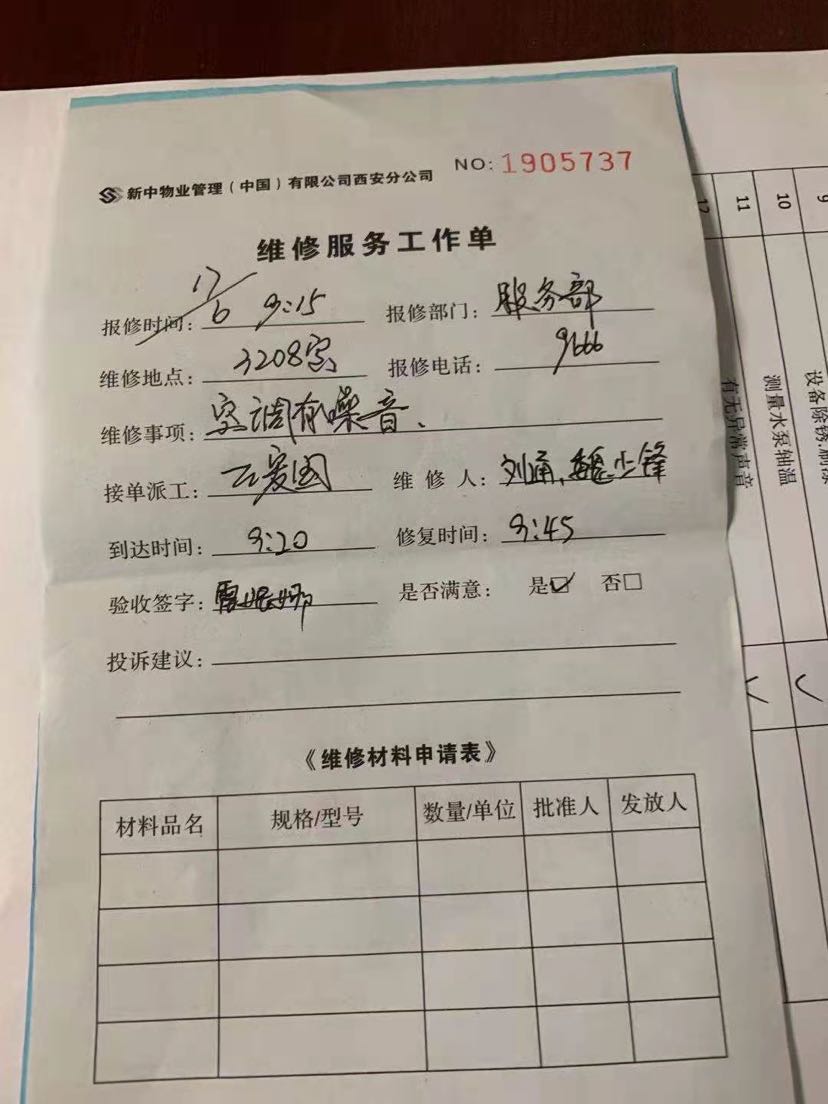 新中物业管理（中国）有限公司西安分公司 NO: 1905737
维修服务工作单
报修时间: 17/6 9:15 报修部门: 服务部
维修地点: 3208室 报修电话: 9666
维修事项: 空调有噪音、
接单派工: 爱国 维 修 人: 刘通、魏少锋
到达时间: 9:20 修复时间: 9:45
验收签字: 雷娜 是否满意: 是☑ 否□
投诉建议:
《维修材料申请表》
材料品名 规格/型号 数量/单位 批准人 发放人
9
10 测量水泵轴温
11 有无异常声音
12
设备除锈